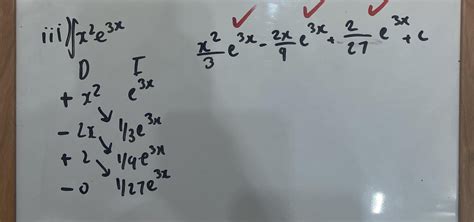 iii) ∫x²e³ˣ
D I
+ x² e³ˣ
- 2x 1/3e³ˣ
+ 2 1/9e³ˣ
- 0 1/27e³ˣ
x²/3 e³ˣ - 2x/9 e³ˣ + 2/27 e³ˣ + c